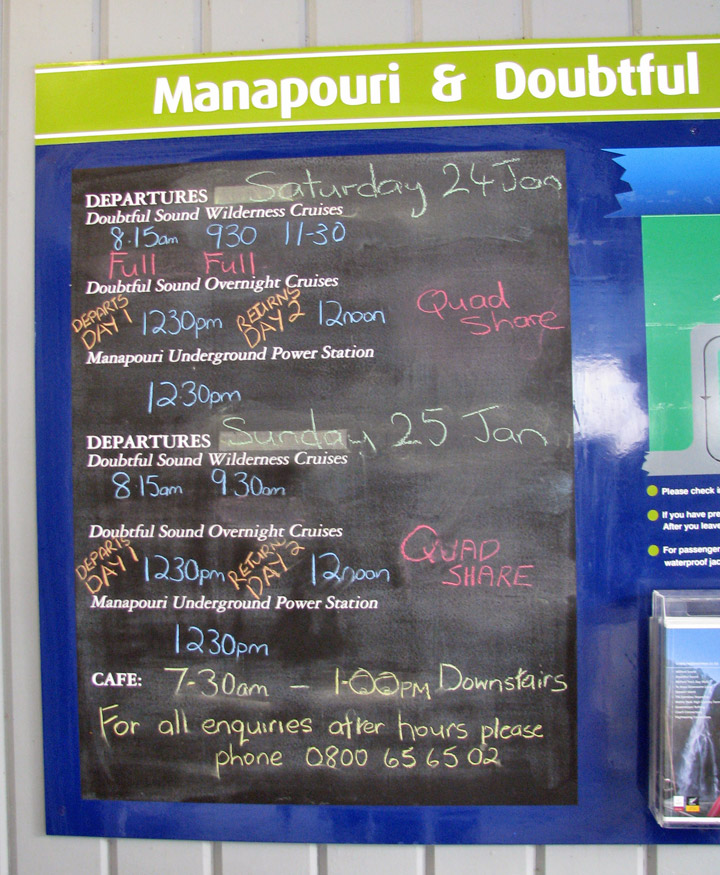 Manapouri & Doubtful
DEPARTURES Saturday 24 Jan
Doubtful Sound Wilderness Cruises
8.15am 930 11-30
Full Full
Doubtful Sound Overnight Cruises
DEPARTS DAY 1 1230pm RETURNS DAY 2 12noon Quad Share
Manapouri Underground Power Station
12.30pm
DEPARTURES Sunday 25 Jan
Doubtful Sound Wilderness Cruises
8.15am 930am
Doubtful Sound Overnight Cruises
DEPARTS DAY 1 1230pm RETURNS DAY 2 12noon QUAD SHARE
Manapouri Underground Power Station
1230pm
CAFE: 7-30am - 1-00PM Downstairs
For all enquiries after hours please
phone 0800 65 65 02
Please check
If you have
After you leave
For passenger
waterproof